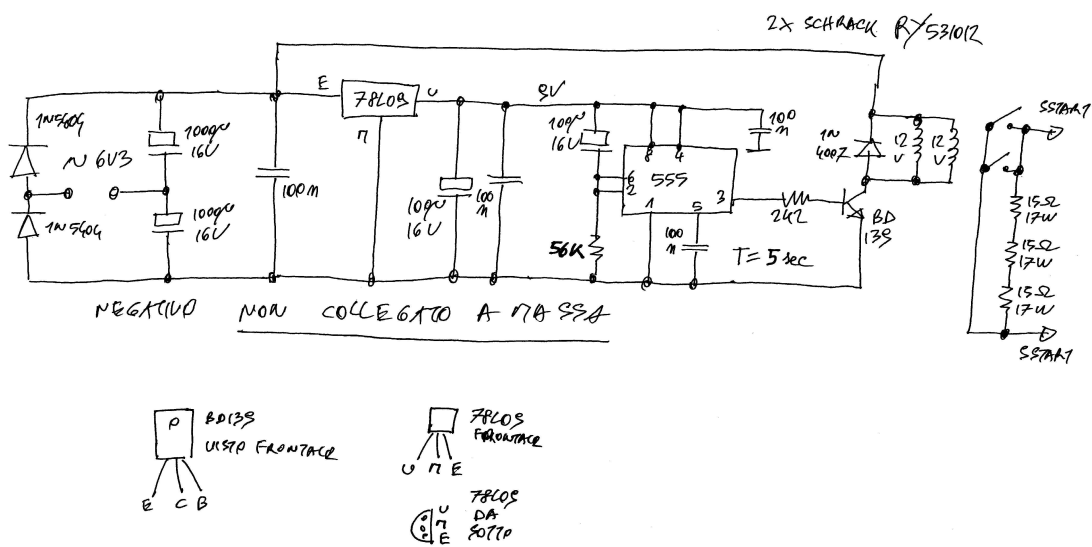 2X SCHRACK RY531012
E
78L09
U
9V
M
1N5404
~ 6V3
1N5404
1000µ
16V
1000µ
16V
100n
100µ
16V
100
n
100µ
16V
100
n
8
4
6
2
555
3
1
5
56K
100
n
2K2
T = 5 sec
BD
139
1N
4007
12
V
12
V
SSTART
15Ω
17W
15Ω
17W
15Ω
17W
SSTART
NEGATIVO NON COLLEGATO A MASSA
BD139
VISTO FRONTALE
E C B
78L09
FRONTALE
U M E
78L09
DA
SOTTO
U
M
E